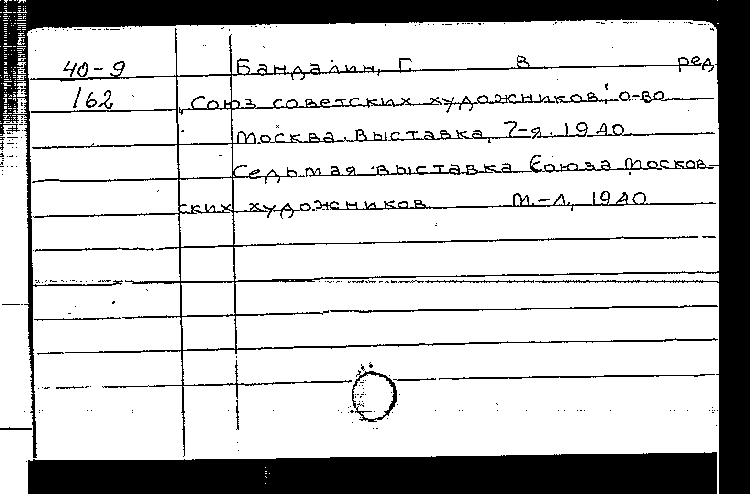 40-9 Бандалин, Г в ред
162 „Союз советских художников", о-во
Москва. Выставка, 7-я. 1940
Седьмая выставка Союза москов-
ских художников М.-Л, 1940